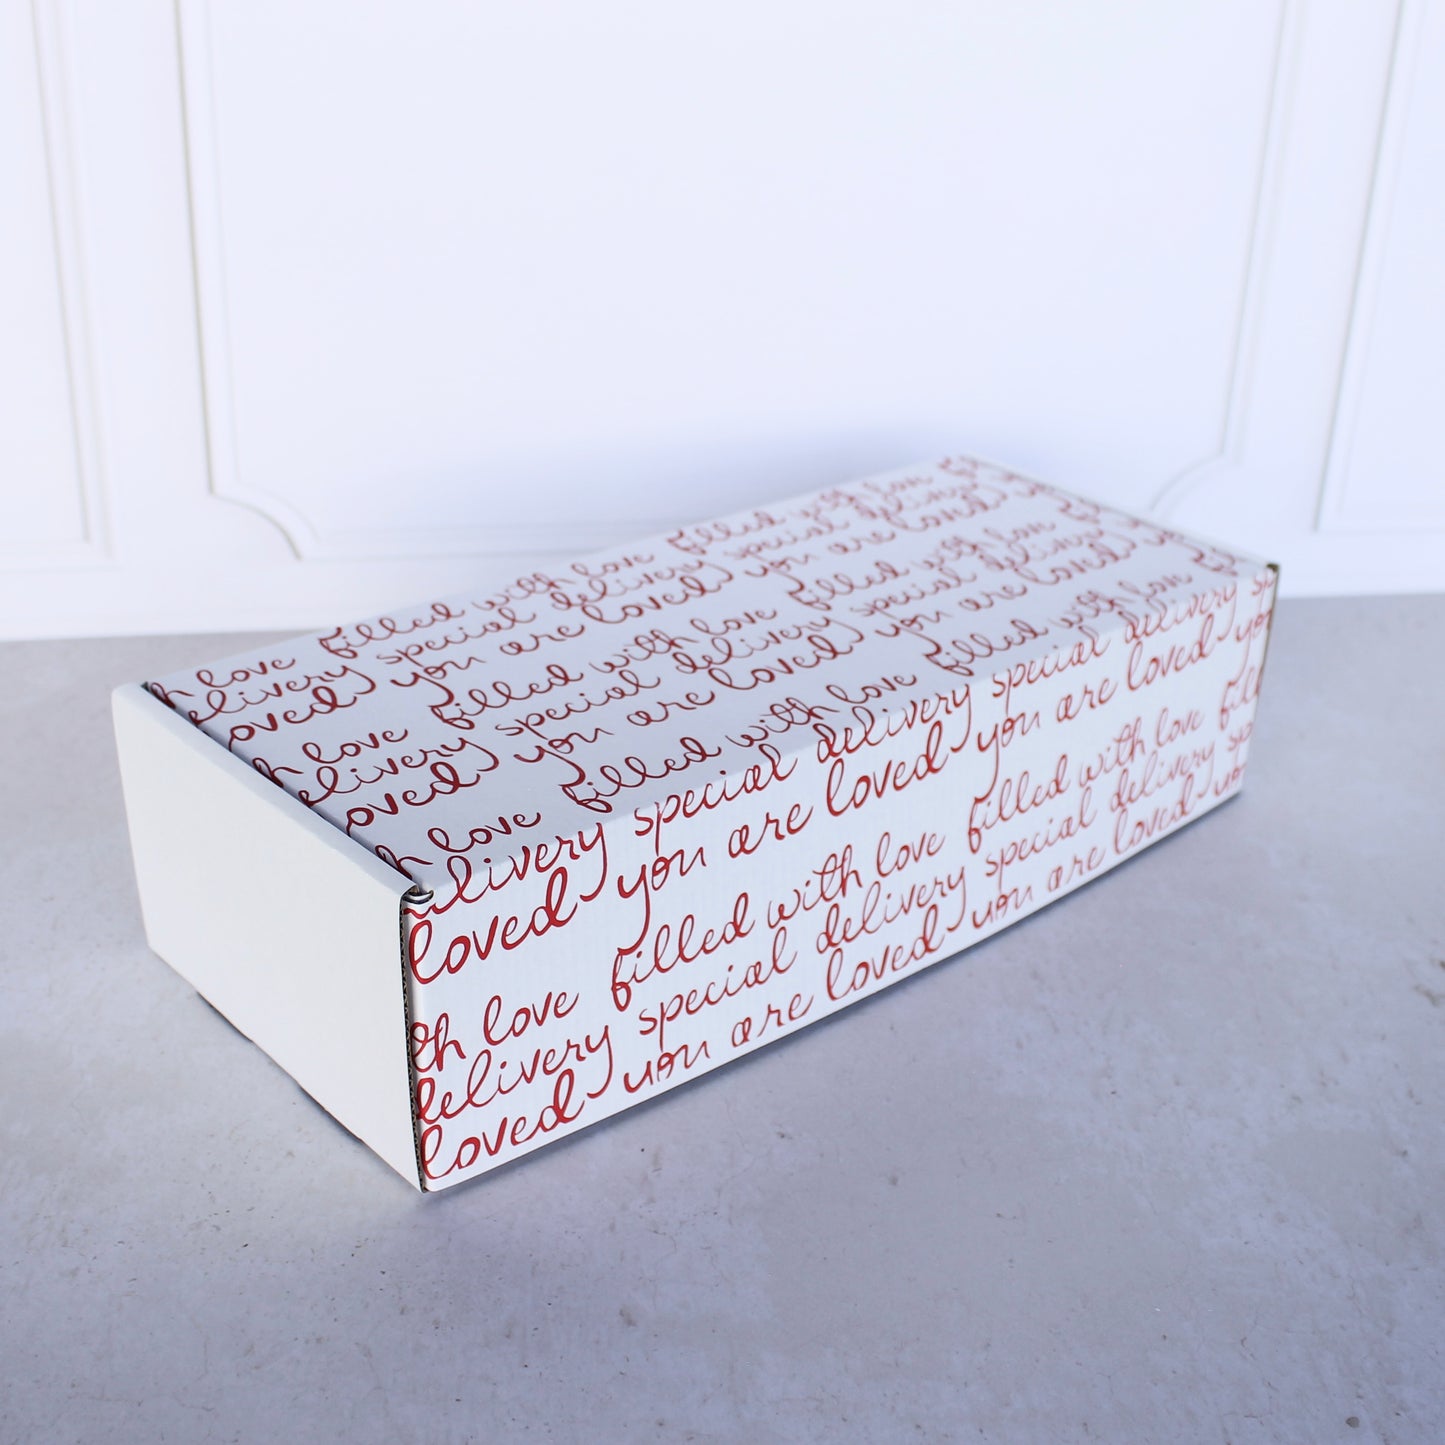 h love filled with love filled with love
delivery special delivery special delivery
loved you are loved you are loved
h love filled with love filled with love
delivery special delivery special delivery
loved you are loved you are loved
h love filled with love filled with love
delivery special delivery special delivery
loved you are loved you are loved
th love filled with love filled with love
delivery special delivery special delivery
loved you are loved